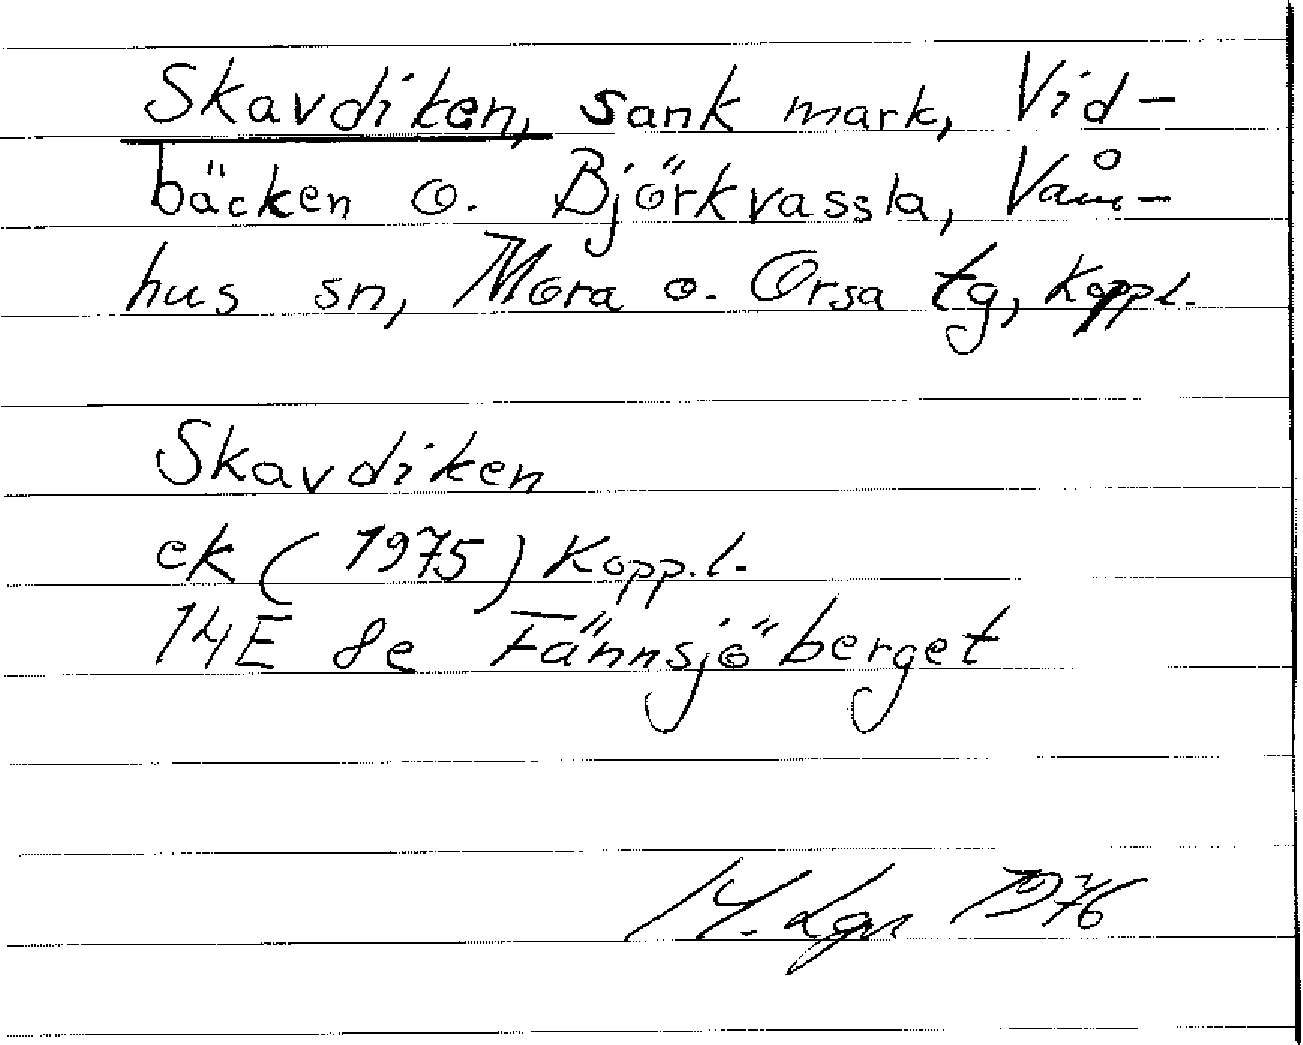 Skavdiken, sank mark, Vid-
bäcken o. Björkvassla, Våm-
hus sn, Mora o. Orsa tg, Kopp.l.
Skavdiken
ek (1975) Kopp.l.
14E 8e Fännsjöberget
1976